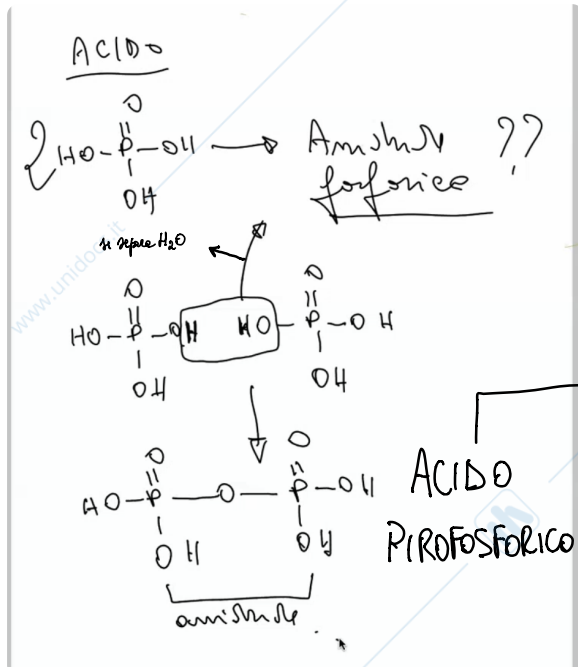 ACIDO
O
2 HO-P-OH → Anidride ??
OH
fosforica
si separa H₂O
O O
HO-P-OH HO-P-OH
OH OH
O O
HO-P-O-P-OH
OH OH
ACIDO
PIROFOSFORICO
anidride
www.unidoc.it